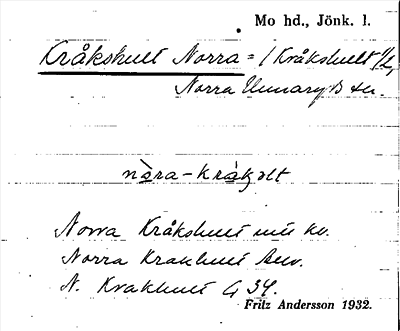 Mo hd., Jönk. l.
Kråkshult Norra = / Kråkshult 1/2,
Norra Unnaryd sn.
nòra-kråkʂəlt
Norra Kråkshult
Norra Krakhult
N. Krakhult G 34.
Fritz Andersson 1932.